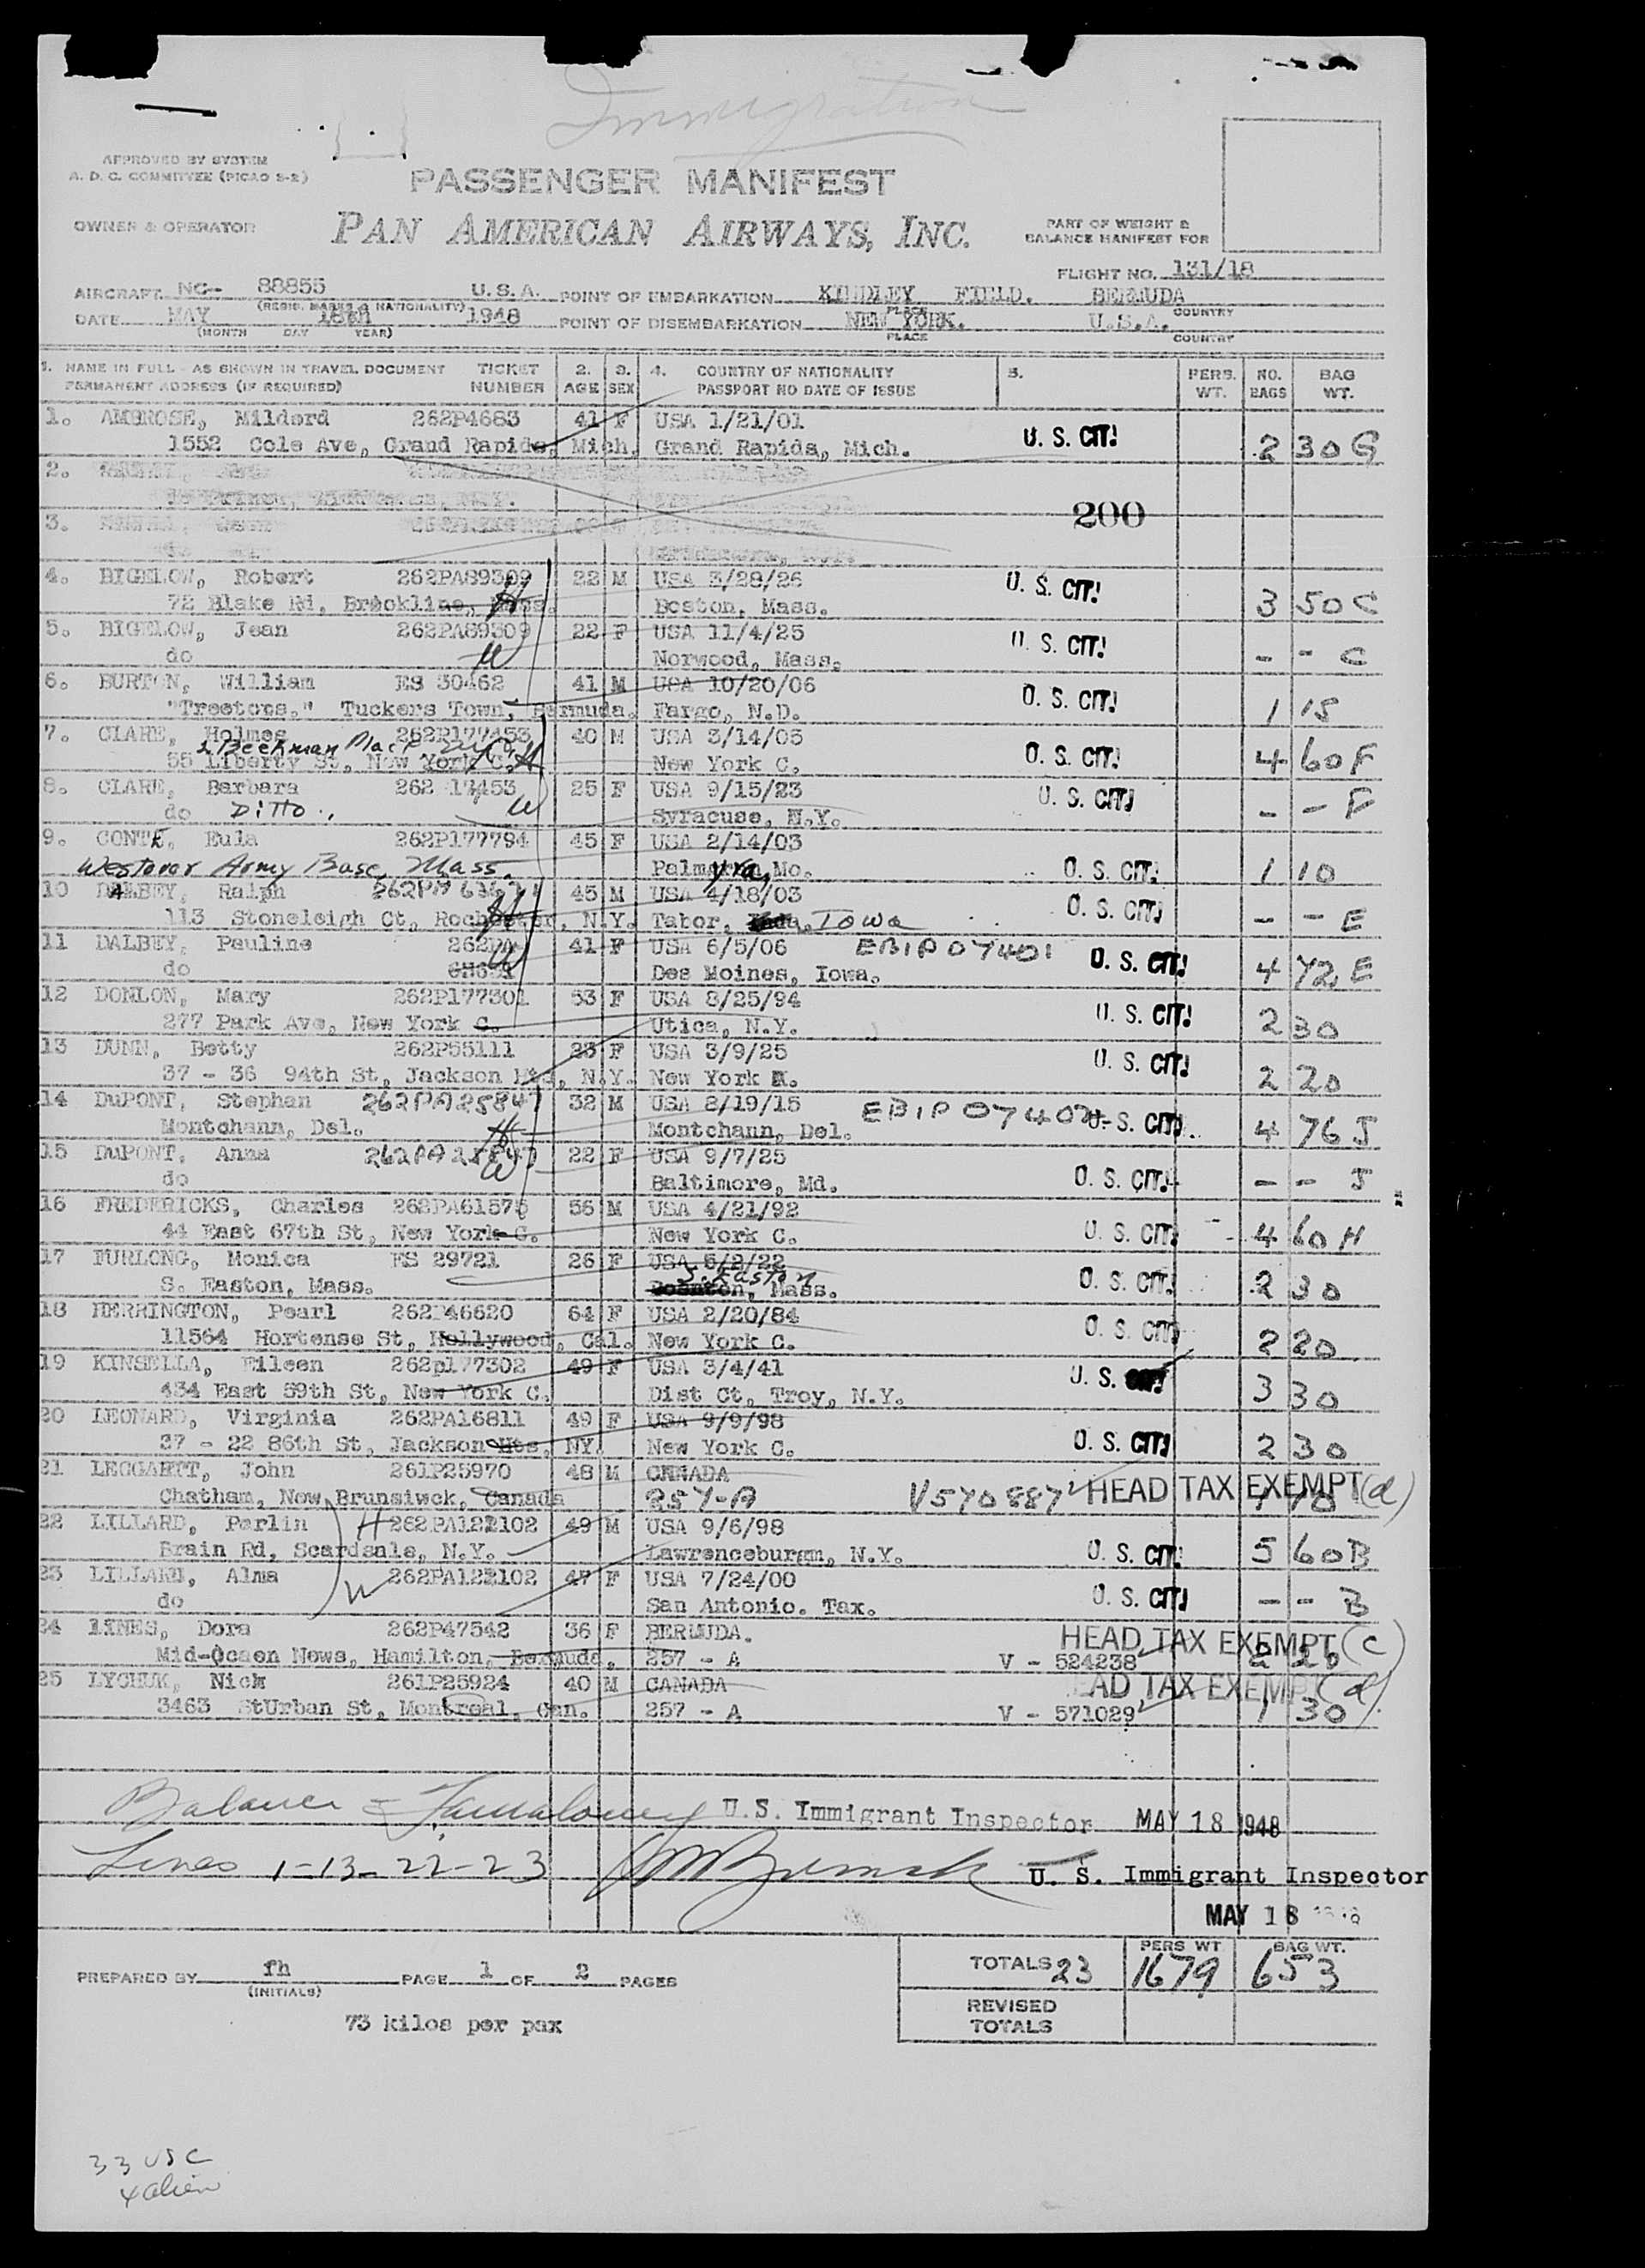 Immigration
APPROVED BY SYSTEM
A. D. C. COMMITTEE (PICAO S-2)
PASSENGER MANIFEST
OWNER & OPERATOR
PAN AMERICAN AIRWAYS, INC.
PART OF WEIGHT &
BALANCE MANIFEST FOR
FLIGHT NO. 131/18
AIRCRAFT NC-- 88855 U.S.A. POINT OF EMBARKATION KINDLEY FIELD. BERMUDA
(REGIS. MARKS & NATIONALITY) PLACE COUNTRY
DATE MAY 18th 1948 POINT OF DISEMBARKATION NEW YORK. U.S.A.
(MONTH DAY YEAR) PLACE COUNTRY
1. NAME IN FULL - AS SHOWN IN TRAVEL DOCUMENT TICKET 2. 3. 4. COUNTRY OF NATIONALITY 5. PERS. NO. BAG
PERMANENT ADDRESS (IF REQUIRED) NUMBER AGE SEX PASSPORT NO DATE OF ISSUE WT. BAGS WT.
1. AMBROSE, Mildord 262P4683 41 F USA 1/21/01
1552 Cole Ave, Grand Rapids, Mich. Grand Rapids, Mich. U. S. CIT! 2 30 G
2.
200
3.
4. BIGELOW, Robert 262PA89309 22 M USA 3/28/26 U. S. CIT!
72 Blake Rd, Brookline, Mass. H Boston, Mass. 3 50 C
5. BIGELOW, Jean 262PA89309 22 F USA 11/4/25 U. S. CIT!
do W Norwood, Mass. - - C
6. BURTON, William ES 30462 41 M USA 10/20/06 U. S. CIT!
"Treetops." Tuckers Town, Bermuda. Fargo, N.D. 1 15
7. CLARE, Holmes 262P177453 40 M USA 3/14/05 U. S. CIT!
2 Beekman Place
55 Liberty St, New York C. H New York C. 4 60 F
8. CLARE, Barbara 262 17453 25 F USA 9/15/23 U. S. CIT!
do Ditto. W Syracuse, N.Y. - - F
9. CONTE, Eula 262P177794 45 F USA 2/14/03
Westover Army Base, Mass. Palmyra, Mo. U. S. CIT! 1 10
10 DALBEY, Ralph 45 M USA 4/18/03 U. S. CIT!
113 Stoneleigh Ct, Rochester, N.Y. Tabor, Iowa - - E
11 DALBEY, Pauline 262PA 41 F USA 6/5/06 EBIP07401 U. S. CIT!
do W Des Moines, Iowa. 4 72 E
12 DONLON, Mary 262P177301 53 F USA 8/25/94 U. S. CIT!
277 Park Ave, New York C. Utica, N.Y. 2 30
13 DUNN, Betty 262P55111 23 F USA 3/9/25 U. S. CIT!
37 - 36 94th St, Jackson Hts, N.Y. New York 2 20
14 DuPONT, Stephan 262PA25847 32 M USA 2/19/15 EBIP07402 U. S. CIT!
Montchann, Del. H Montchann, Del. 4 76 J
15 DuPONT, Anna 262PA25847 22 F USA 9/7/25
do W Baltimore, Md. U. S. CIT! - - J
16 FREDERICKS, Charles 262PA61575 56 M USA 4/21/92
44 East 67th St, New York C. New York C. U. S. CIT! 4 60 H
17 FURLONG, Monica ES 29721 26 F USA 5/2/22
S. Easton
S. Easton, Mass. Mass. U. S. CIT! 2 30
18 HERRINGTON, Pearl 262P46620 64 F USA 2/20/84 U. S. CIT!
11564 Hortense St, Hollywood, Cal. New York C. 2 20
19 KINSELLA, Eileen 262p177302 49 F USA 3/4/41 U. S. CIT!
434 East 59th St, New York C. Dist Ct, Troy, N.Y. 3 30
20 LEONARD, Virginia 262PA16811 49 F USA 9/9/98
37 - 22 86th St, Jackson Hts, NY. New York C. U. S. CIT! 2 30
21 LEGGAETT, John 261P25970 48 M CANADA
Chatham, New Brunsiwck, Canada 257-A V570887 HEAD TAX EXEMPT (d) 1 70
22 LILLARD, Perlin H 262PA122102 49 M USA 9/6/98
Brain Rd, Scardsale, N.Y. Lawrenceburgm, N.Y. U. S. CIT! 5 60 B
23 LILLARD, Alma 262PA122102 47 F USA 7/24/00
do W San Antonio. Tax. U. S. CIT! - - B
24 LINES, Dora 262P47542 36 F BERMUDA. HEAD TAX EXEMPT (c)
Mid-Ocaen News, Hamilton, Bermuda. 257 - A V - 524238
25 LYCHUK, Nick 261P25924 40 M CANADA HEAD TAX EXEMPT (d)
3463 StUrban St, Montreal, Can. 257 - A V - 571029 1 30
Balance = U.S. Immigrant Inspector MAY 18 1948
Lines 1-13-22-23 U. S. Immigrant Inspector
MAY 18
PREPARED BY fh PAGE 1 OF 2 PAGES
(INITIALS)
PERS WT. BAG WT.
TOTALS 23 1679 653
REVISED
TOTALS
73 kilos per pax
33 USC
4 alien